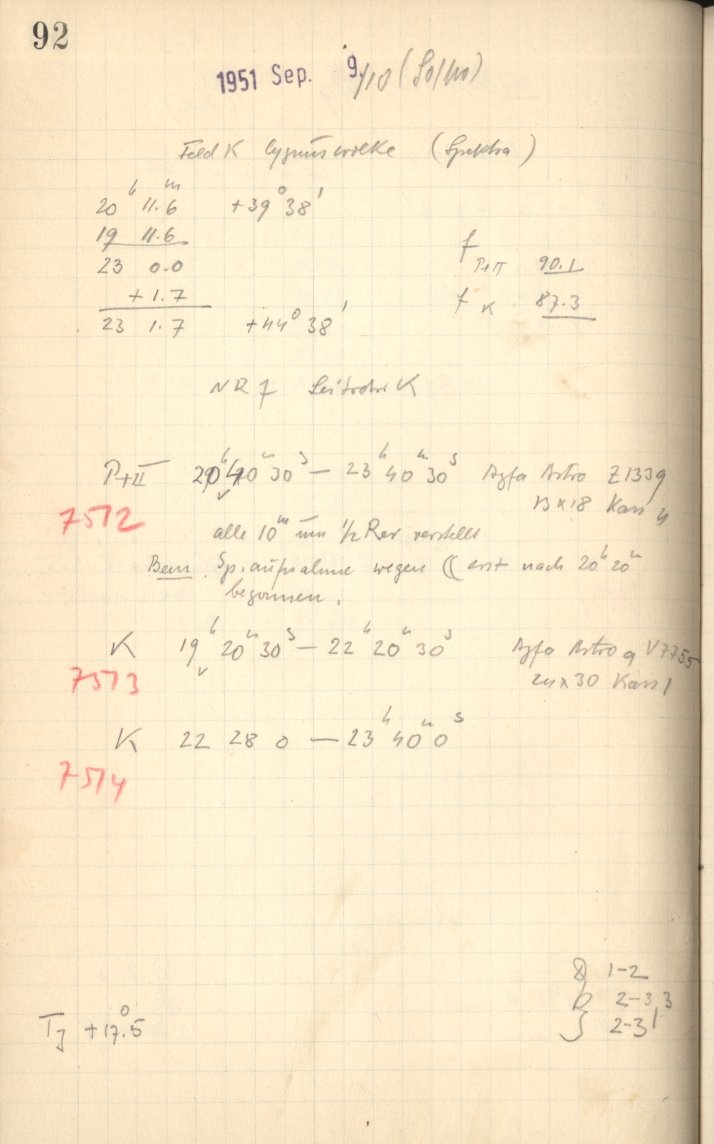 92
1951 Sep. 9./10 (So/Mo)
Feld K Cygnuswolke (Spektra)
20ʰ 11.6ᵐ +39° 38'
19 11.6
23 0.0
+1.7
23 1.7 +44° 38'
f P+II 90.1
f K 87.3
NR 7 Leitrohr K
P+II 20ʰ 40ᵐ 30ˢ — 23ʰ 40ᵐ 30ˢ Agfa Astro Z1339
7512
13x18 Kass 4
alle 10ᵐ um 1/2 Rev verstellt
Bem. Sp.aufnahme wegen ☾ erst nach 20ʰ 20ᵐ
begonnen.
K 19ʰ 20ᵐ 30ˢ — 22ʰ 20ᵐ 30ˢ Agfa Astro V7755
7513
24x30 Kass 1
K 22 28 0 — 23ʰ 40ᵐ 0ˢ
7514
1-2
D 2-3,3
S 2-3
+17.5°